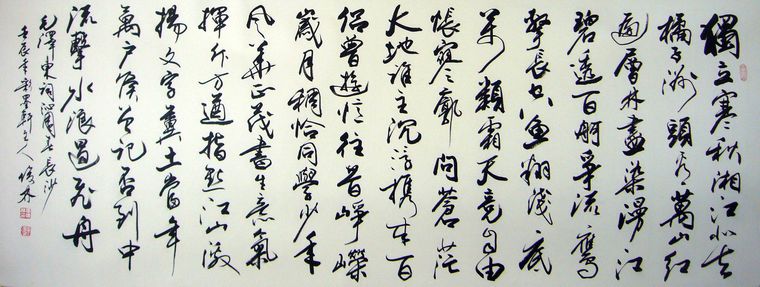 獨立寒秋湘江北去
橘子洲頭看萬山紅
遍層林盡染漫江
碧透百舸爭流鷹
擊長空魚翔淺底
萬類霜天競自由
悵寥廓問蒼茫
大地誰主沉浮攜來百
侶曾遊憶往昔崢嶸
歲月稠恰同學少年
風華正茂書生意氣
揮斥方遒指點江山激
揚文字糞土當年
萬戶侯曾記否到中
流擊水浪遏飛舟
毛澤東詞沁園春長沙
壬辰 軒主人